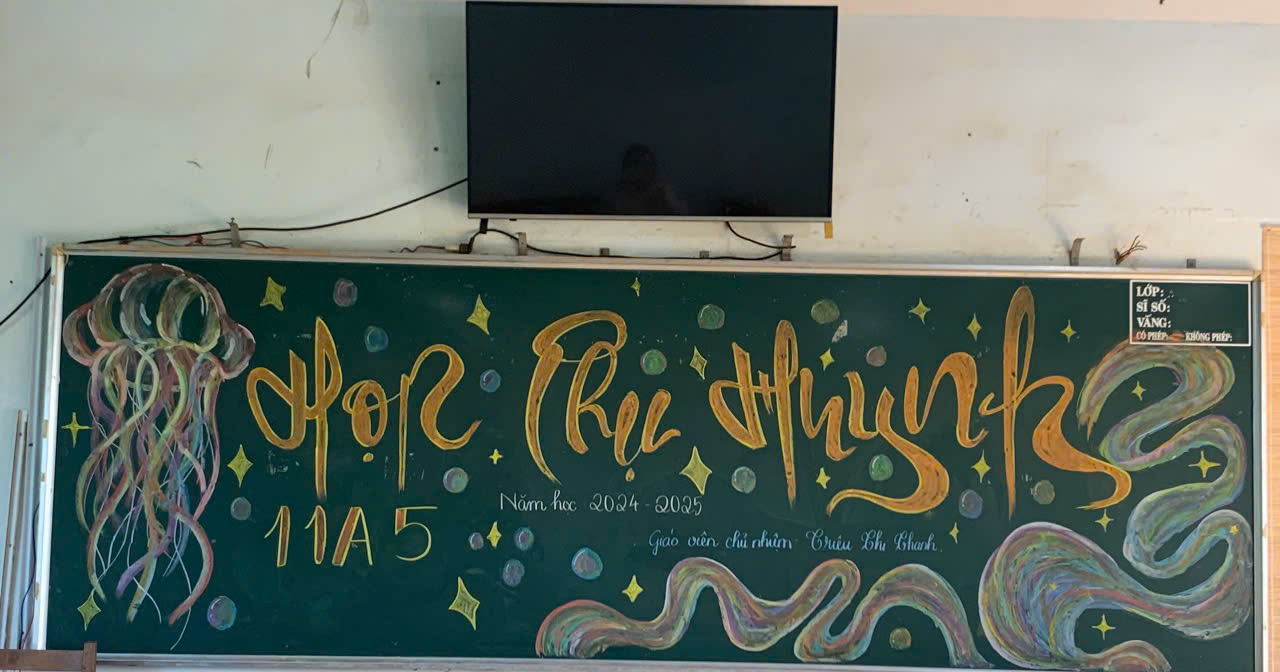 Họp Phụ Huynh
11A5
Năm học 2024 - 2025
Giáo viên chủ nhiệm Triệu Thị Thanh
LỚP:
SĨ SỐ:
VẮNG:
CÓ PHÉP: KHÔNG PHÉP: